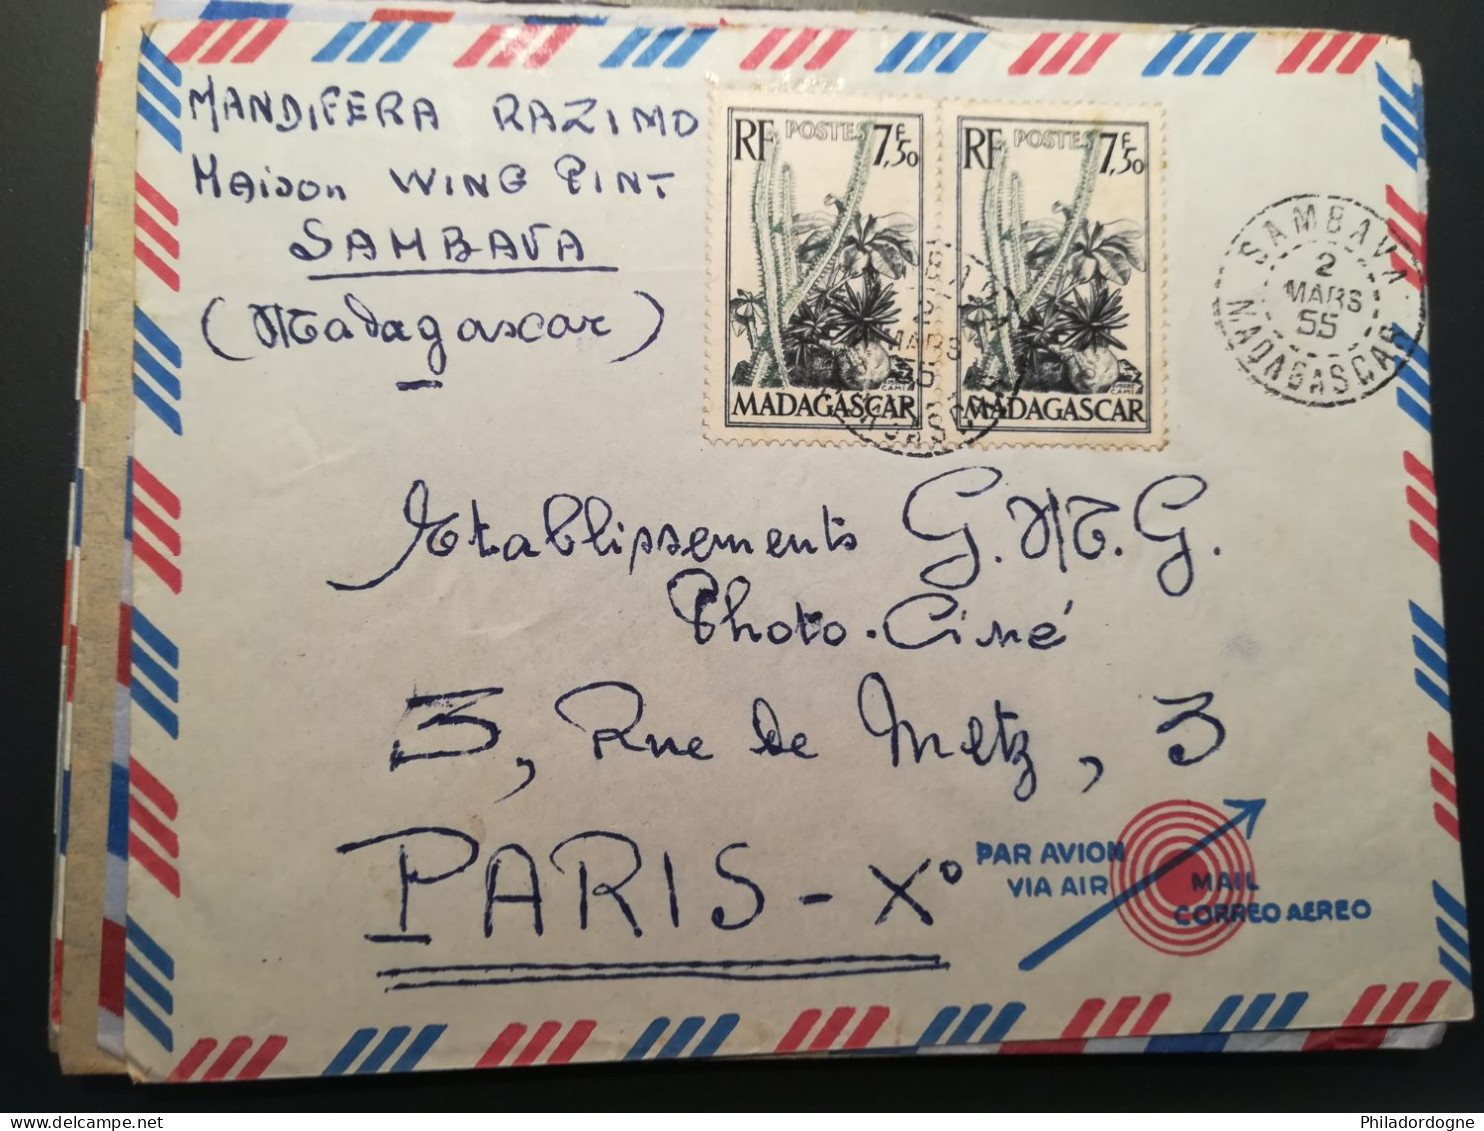 MANDIFERA RAZIMO
Maison WING PINT
SAMBAVA
(Madagascar)
RF POSTES 7,F50
MADAGASCAR
RF POSTES 7,F50
MADAGASCAR
SAMBAVA
2
MARS
55
MADAGASCAR
Etablissements G.M.G.
Photo-Ciné
3, Rue de Metz, 3
PARIS-Xº
PAR AVION
VIA AIR MAIL
CORREO AEREO
Philadordogne